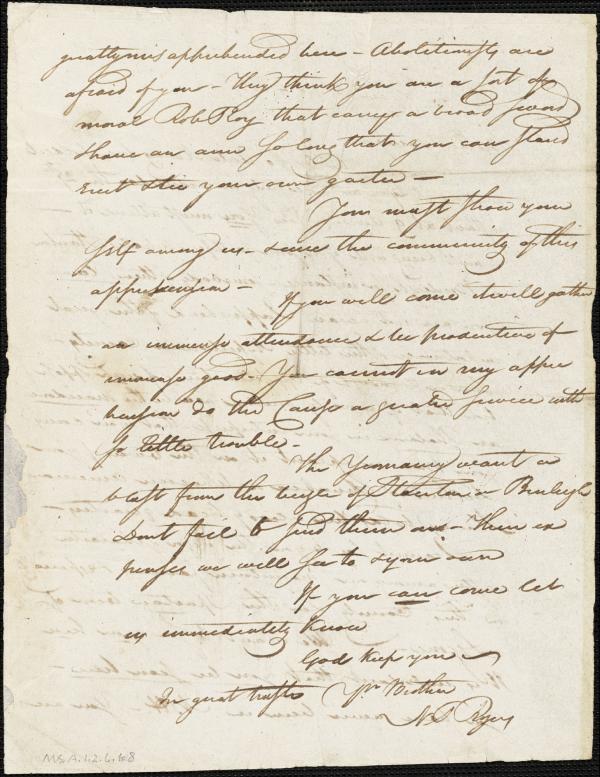 greatly misapprehended here - Abolitionists are
afraid of you - They think you are a sort of
moral Rob Roy that carrys a broad sword
& have an arm so long that you can stand
erect & tie your own garter -
You must show your
self among us - & cure the community of this
apprehension -
If you will come it will gather
an immense attendance & be productive of
immense good - You cannot in my appre
hension do the Cause a greater service with
so little trouble -
The Yeomanry want a
blast from the bugle of Stanton or Burleigh
Dont fail to send them one - Their ex
penses we will see to & your own
If you can come let
us immediately know
God keep you
In great haste Yr Brother
N P Rogers
Ms.A.1.2.6.68